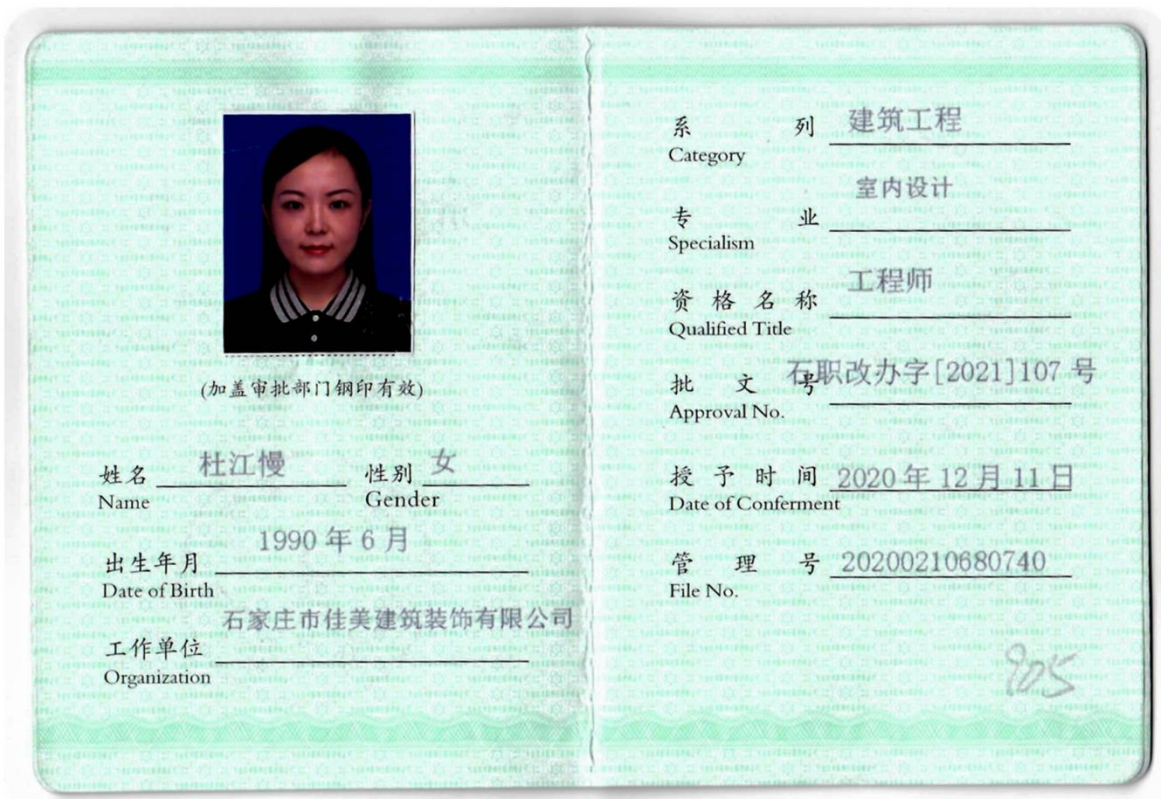 (加盖审批部门钢印有效)
姓名 杜江慢 性别 女
Name Gender
出生年月 1990 年 6 月
Date of Birth
石家庄市佳美建筑装饰有限公司
工作单位
Organization
系列 建筑工程
Category
室内设计
专业
Specialism
资格名称 工程师
Qualified Title
批文号 石职改办字[2021]107 号
Approval No.
授予时间 2020 年 12 月 11 日
Date of Conferment
管理号 20200210680740
File No.
905